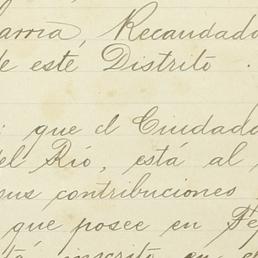 arria, Recaudado
de este Distrito.
que el Ciudada
del Río, está al
sus contribuciones
que posee en Fe
inscrito en